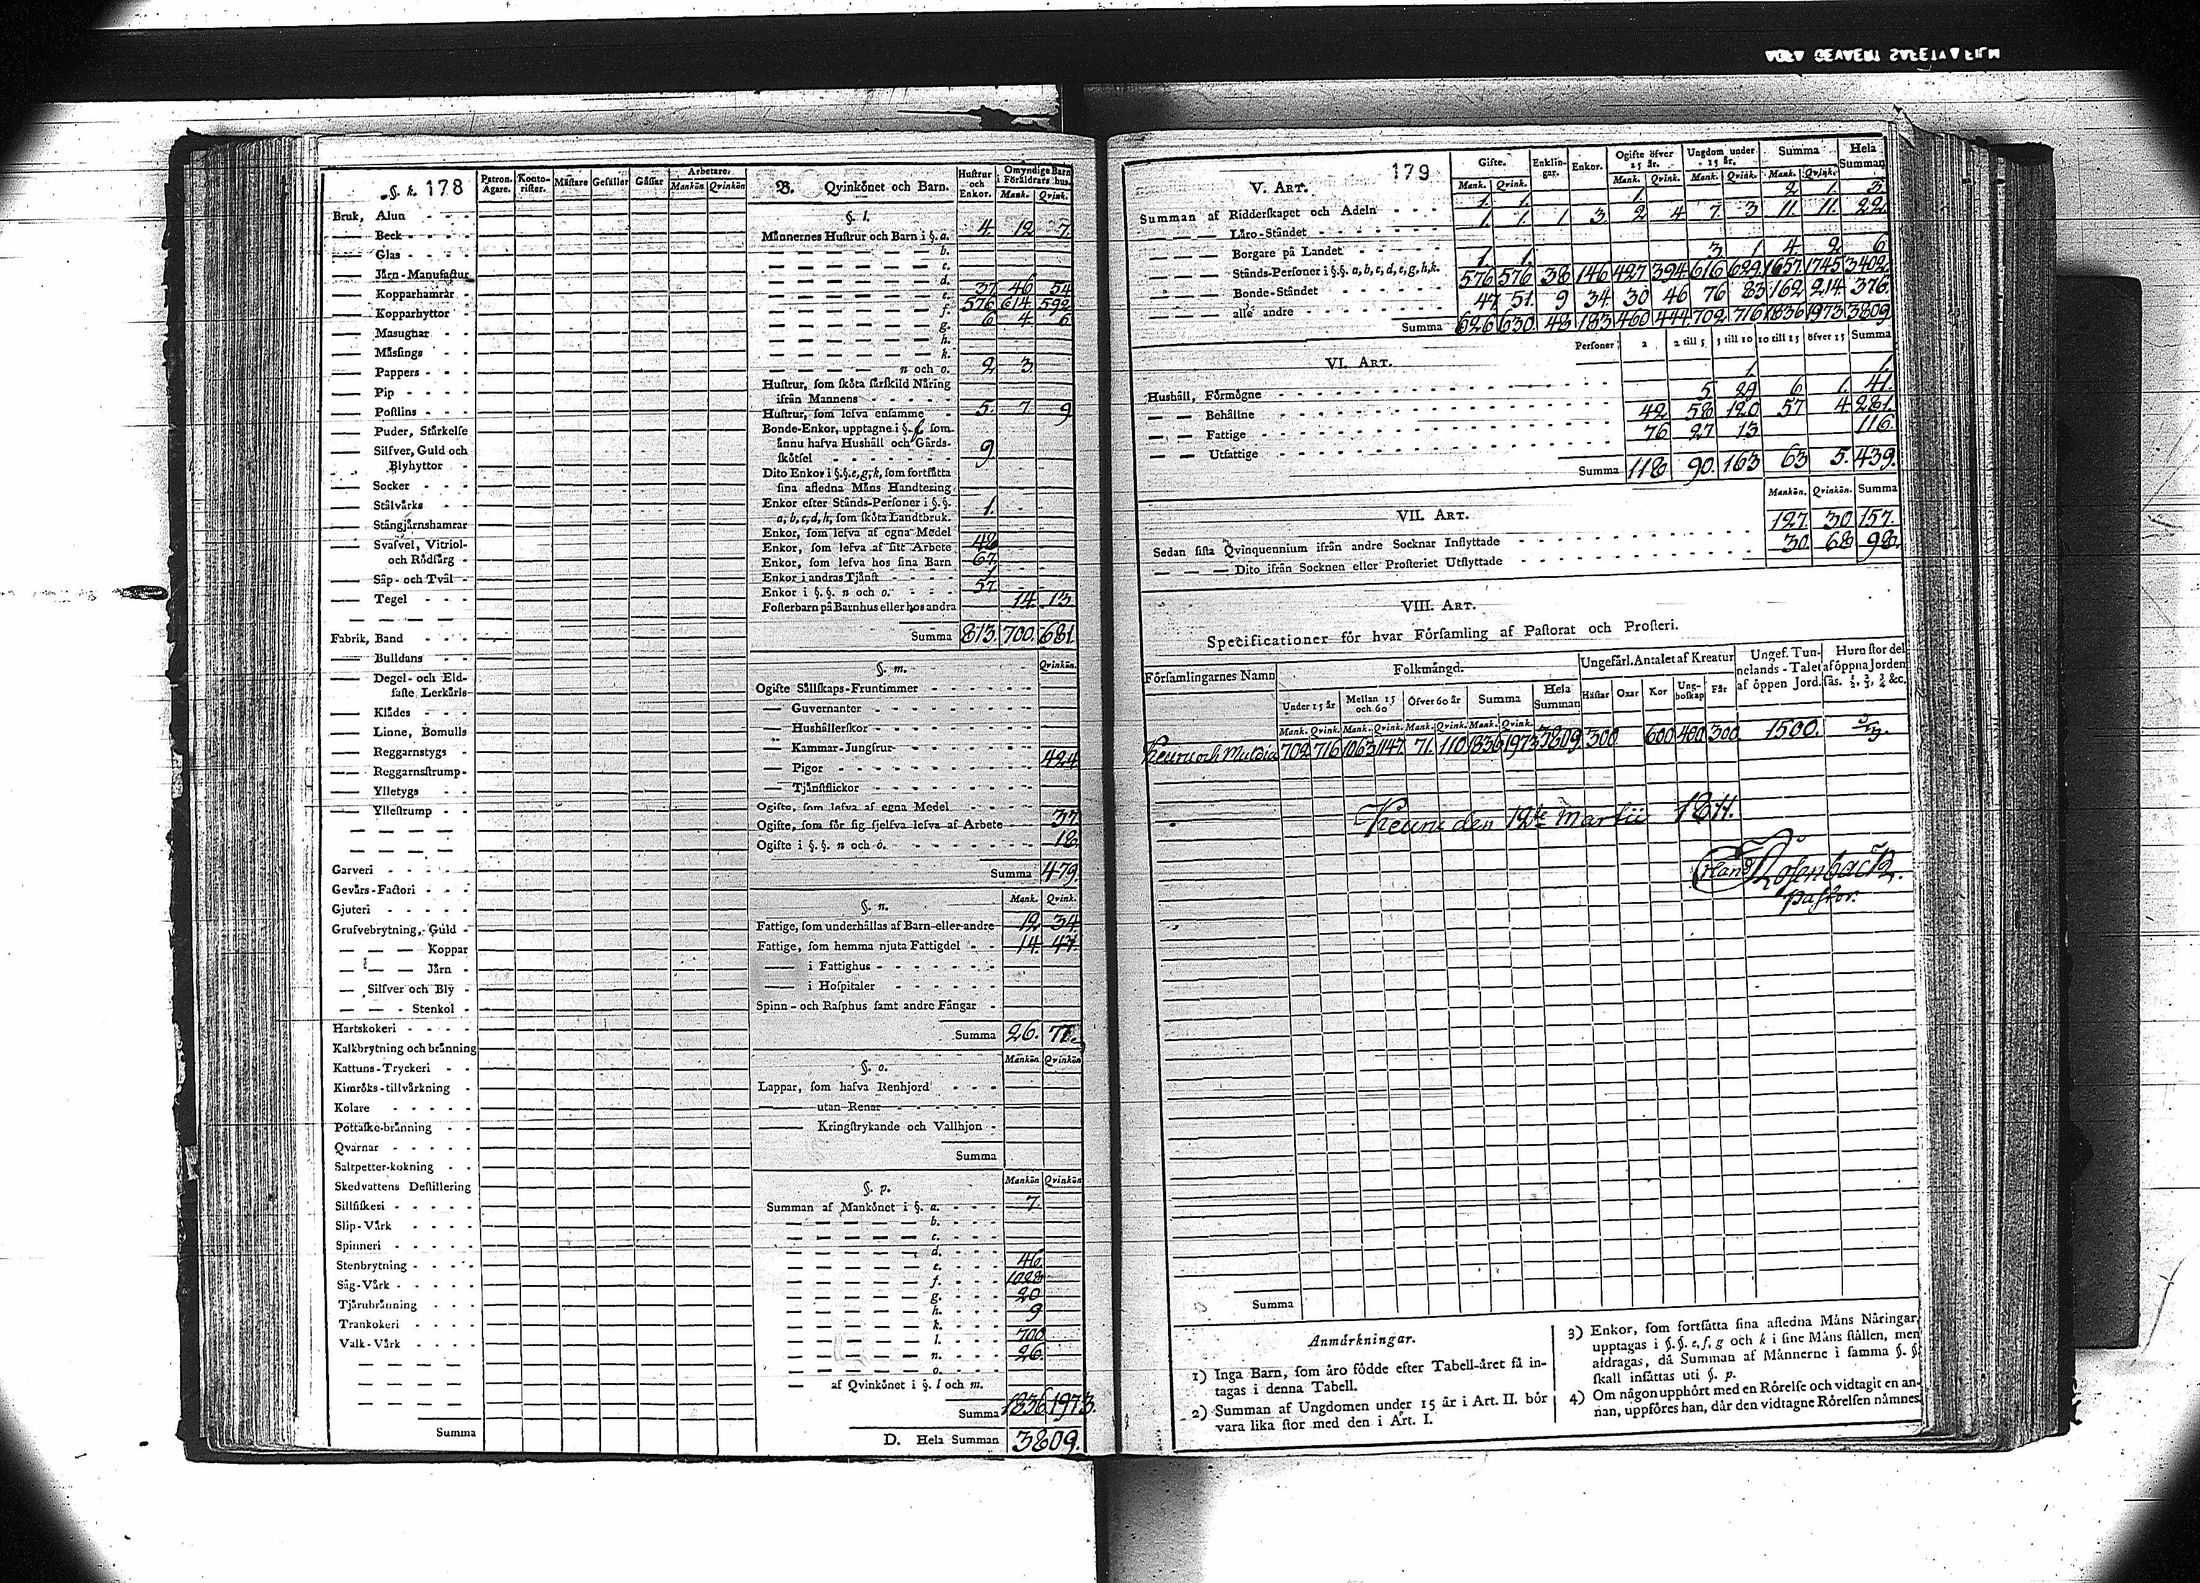 §. k. 178
Patron. Ågare. Konto-rister. Måstare Gesåller Gåssar Arbetare. Mankön Qvinkön
Bruk, Alun
Beck
Glas
Jårn-Manufactur
Kopparhamrar
Kopparhyttor
Masugnar
Måssings
Pappers
Pip
Postlins
Puder, Stårkelse
Silfver, Guld och
Blyhyttor
Socker
Stålvårks
Stångjårnshamrar
Svafvel, Vitriol-
och Rödfårg
Såp- och Tvål
Tegel
Fabrik, Band
Bulldans
Degel- och Eld-
faste Lerkårls
Klådes
Linne, Bomulls
Reggarnstygs
Reggarnsstrump
Ylletygs
Yllestrump
Garveri
Gevårs-Factori
Gjuteri
Grufvebrytning, Guld
Koppar
Jårn
Silfver och Bly
Stenkol
Hartskokeri
Kalkbrytning och brånning
Kattuns-Tryckeri
Kimröks-tillvårkning
Kolare
Pottaske-brånning
Qvarnar
Saltpetter-kokning
Skedvattens Destillering
Sillfiskeri
Slip-Vårk
Spinneri
Stenbrytning
Såg-Vårk
Tjårubrånning
Trankokeri
Valk-Vårk
Summa
B. Qvinkönet och Barn. Hustrur och Enkor. Omyndige Barn i Föråldrars hus. Mank. Qvink.
§. l.
Månnernes Hustrur och Barn i §. a. 4 12 7
b.
c.
d.
e. 37 46 54
f. 576 614 592
g. 6 4 6
h.
k.
n och o. 2 3
Hustrur, som sköta sårskild Nåring
ifrån Mannens
Hustrur, som lefva ensamme 5 7 9
Bonde-Enkor, upptagne i §. f. som
ånnu hafva Hushåll och Gårds-
skötsel 9
Dito Enkor i §.§. e, g, k, som fortsåtta
sina afledna Måns Handtering
Enkor efter Stånds-Personer i §.§.
a, b, c, d, h, som sköta Landtbruk. 1.
Enkor, som lefva af egna Medel
Enkor, som lefva af sitt Arbete 48
Enkor, som lefva hos sina Barn 67
Enkor i andras Tjånst
Enkor i §.§. n och o. 57
Fosterbarn på Barnhus eller hos andra 14 13
Summa 813. 700. 681.
§. m. Qvinkön.
Ogifte Sållskaps-Fruntimmer
Guvernanter
Hushållerskor
Kammar-Jungfrur
Pigor 424
Tjånstflickor
Ogifte, som lefva af egna Medel
Ogifte, som för sig sjelfva lefva af Arbete 37
Ogifte i §.§. n och o. 18
Summa 479.
§. n. Mank. Qvink.
Fattige, som underhållas af Barn eller andre 12 34
Fattige, som hemma njuta Fattigdel 14 47.
i Fattighus
i Hospitaler
Spinn- och Rasphus samt andre Fångar
Summa 26.
§. o. Mankön. Qvinkön
Lappar, som hafva Renhjord
utan Renar
Kringstrykande och Vallhjon
Summa
§. p. Mankön Qvinkön
Summan af Mankönet i §. a. 7.
b.
c.
d.
e. 46.
f. 1028
g. 20
h. 9
k.
l. 700
n. 26.
o.
af Qvinkönet i §. l och m.
Summa 1836 1973.
D. Hela Summan 3809.
179
V. Art. Gifte. Enklin-gar. Enkor. Ogifte öfver 15 år. Ungdom under 15 år. Summa Hela Summan
Mank. Qvink. Mank. Qvink. Mank. Qvink. Mank. Qvink.
Summan af Ridderskapet och Adeln 1. 1. 1. 2 1. 3
Låro-Ståndet 1. 1. 1 3 2 4 7 3 11. 11. 22
Borgare på Landet
Stånds-Personer i §.§. a, b, c, d, e, g, h, k. 1. 1. 3 1 4 2 6
Bonde-Ståndet 576 576 38 146 427 394 616 629 1657 1745 3402
alle andre 47 51. 9 34 30 46 76 83 162 214. 376
Summa 626 630 48 183 460 444 702 716 1836 1973 3809
VI. Art. Personer 2 2 till 5 5 till 10 10 till 15 öfver 15 Summa
Hushåll, Förmögne 1. 1.
Behållne 5 29 6 1. 41.
Fattige 42 58 120 57 4 281.
Utfattige 76 27 13 116.
Summa 118 90. 163 63 5. 439.
VII. Art. Mankön. Qvinkön. Summa
Sedan sista Qvinquennium ifrån andre Socknar Inflyttade 127. 30 157.
Dito ifrån Socknen eller Prosteriet Utflyttade 30. 68 98.
VIII. Art.
Specificationer för hvar Församling af Pastorat och Prosteri.
Församlingarnes Namn Folkmångd. Ungefårl. Antalet af Kreatur Ungef. Tun-nelands-Talet af öppen Jord. Huru stor del af öppna Jorden sås. ½, ⅔, ¾ &c.
Under 15 år Mellan 15 och 60 Öfver 60 år Summa Hela Summan Håstar Oxar Kor Ung-boskap Får
Mank. Qvink. Mank. Qvink. Mank. Qvink. Mank. Qvink.
Keuru och Muldia 702 716 1063 1147 71. 110 1836 1973 3809 300 600 480 300 1500.
Keuru den 12te Martii 1811.
Rosenback.
Pastor.
Summa
Anmårkningar.
1) Inga Barn, som åro födde efter Tabell-året få in-
tagas i denna Tabell.
2) Summan af Ungdomen under 15 år i Art. II. bör
vara lika stor med den i Art. I.
3) Enkor, som fortsåtta sina afledna Måns Nåringar,
upptagas i §.§. e, f, g och k i sine Måns stållen, men
afdragas, då Summan af Månnerne i samma §. §.
skall insåttas uti §. p.
4) Om någon upphört med en Rörelse och vidtagit en an-
nan, uppföres han, dår den vidtagne Rörelsen nåmnes